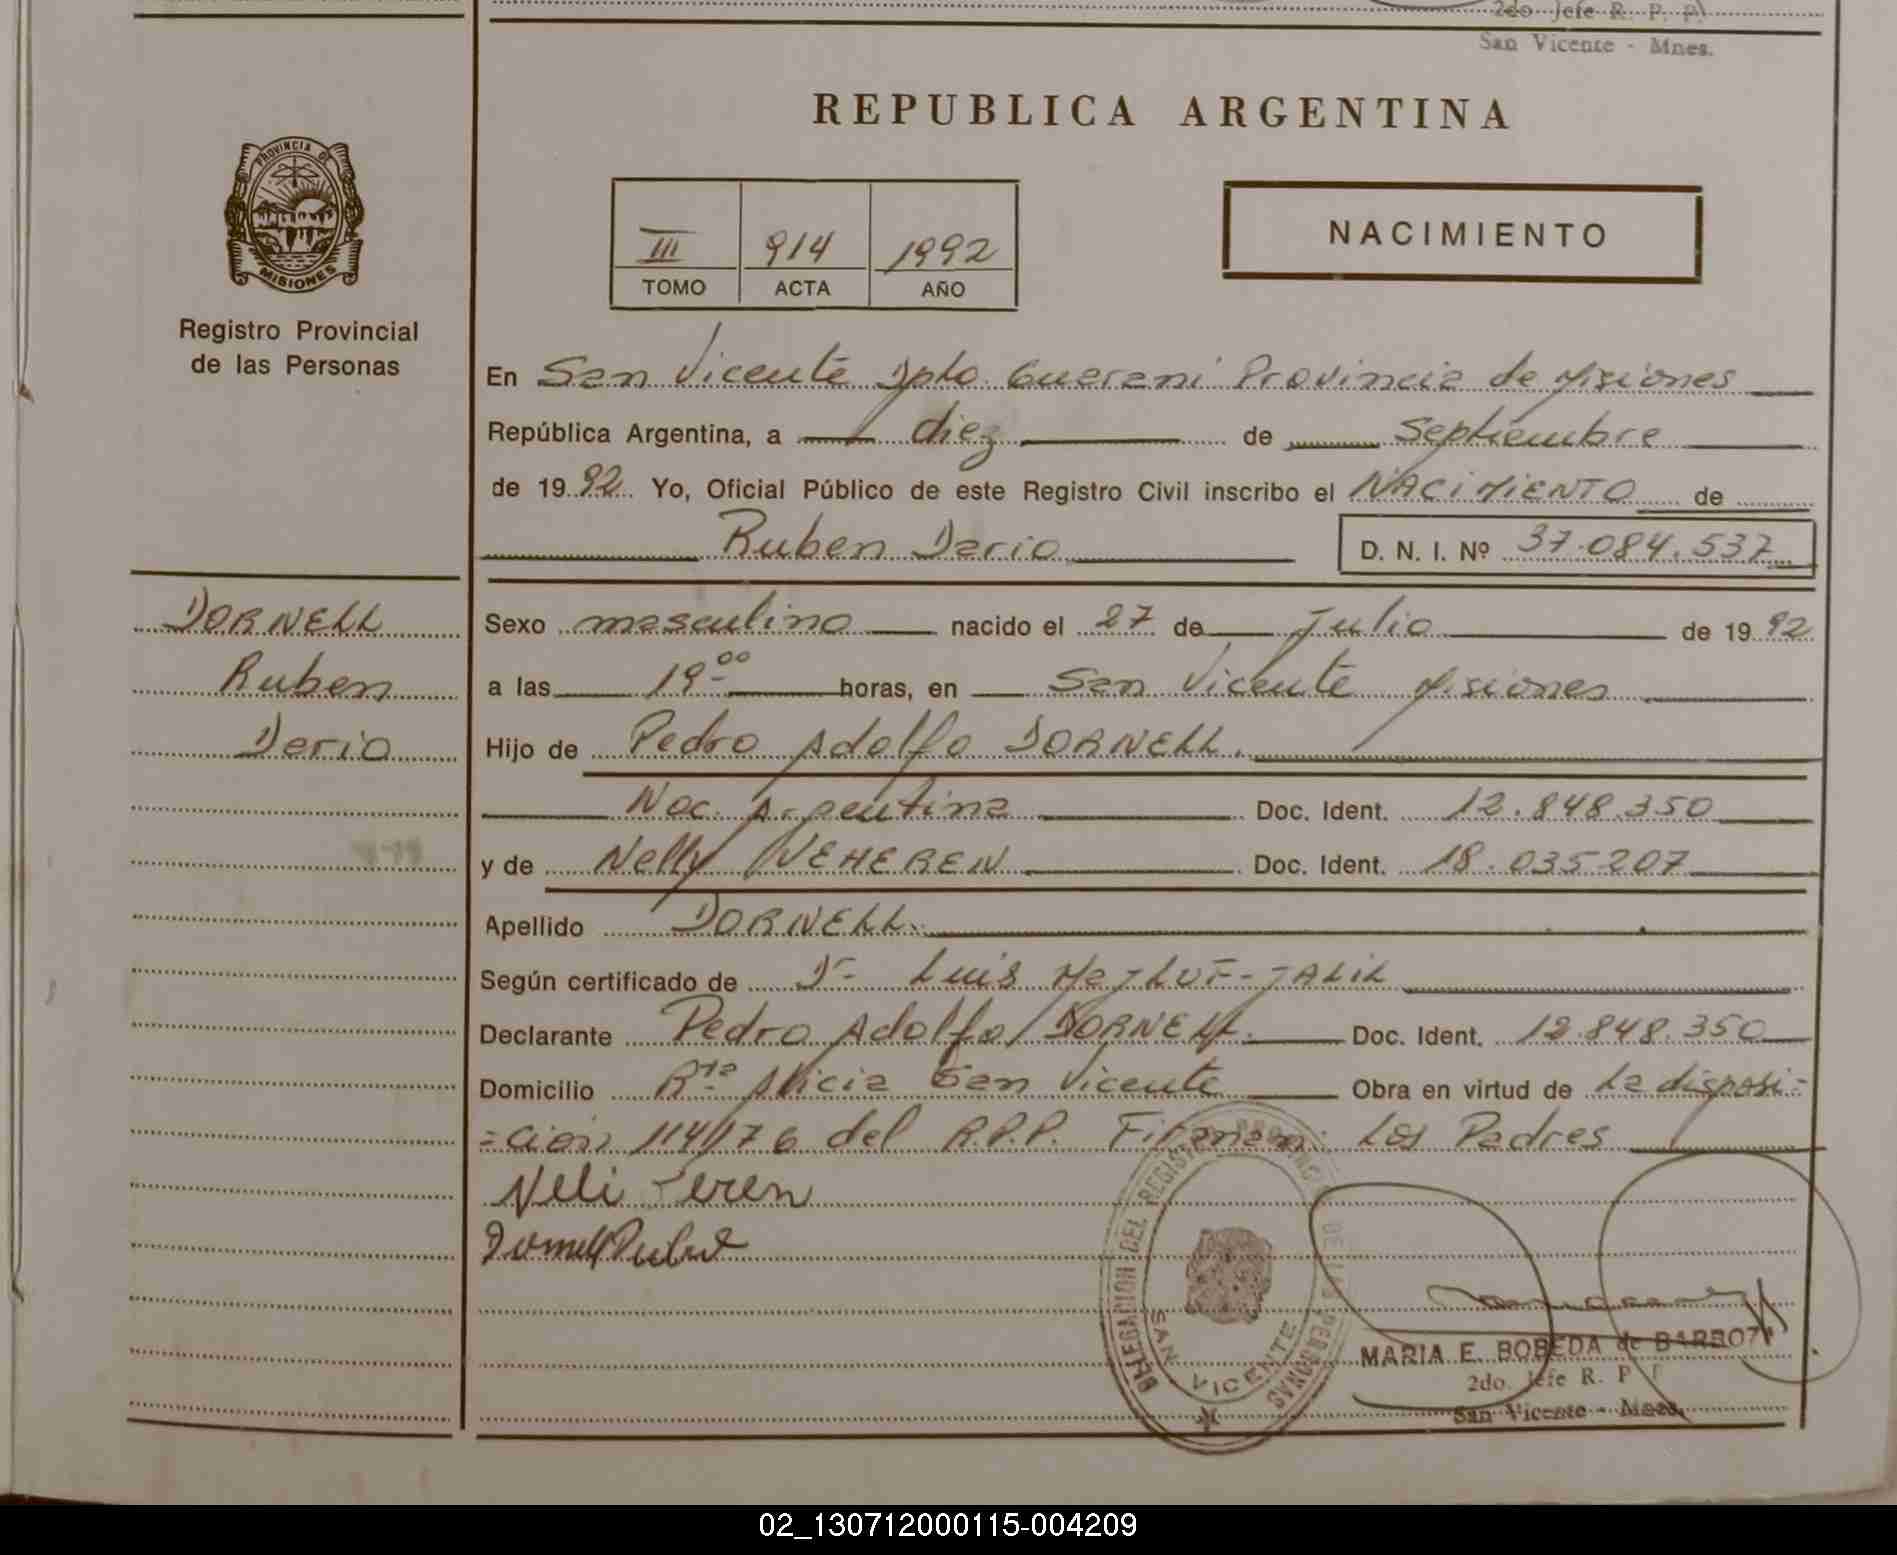 2do Jefe R. P. P.
San Vicente - Mnes.
REPUBLICA ARGENTINA
PROVINCIA DE
MISIONES
Registro Provincial
de las Personas
III 914 1992
TOMO ACTA AÑO
NACIMIENTO
En San Vicente Dpto. Guarani Provincia de Misiones
República Argentina, a diez de Septiembre
de 1992. Yo, Oficial Público de este Registro Civil inscribo el NACIMIENTO de
Ruben Dario D. N. I. Nº 37.084.537
DORNELL
Ruben
Dario
Sexo masculino nacido el 27 de Julio de 1992
a las 19 00 horas, en San Vicente Misiones
Hijo de Pedro Adolfo DORNELL.
Nac. Argentina Doc. Ident. 12.848.350
y de Nelly NEHEREN Doc. Ident. 18.035207
Apellido DORNELL.
Según certificado de Dr Luis JALIL
Declarante Pedro Adolfo DORNELL. Doc. Ident. 12.848.350
Domicilio Alicia San Vicente Obra en virtud de la disposi-
=ción 114/176 del R.P.P. Firman: Los Padres
Neli
DELEGACION DEL REGISTRO PROVINCIAL DE LAS PERSONAS
SAN VICENTE
MARIA E. BOBEDA de
2do. Jefe R. P. P.
San Vicente - Mnes.
02_130712000115-004209